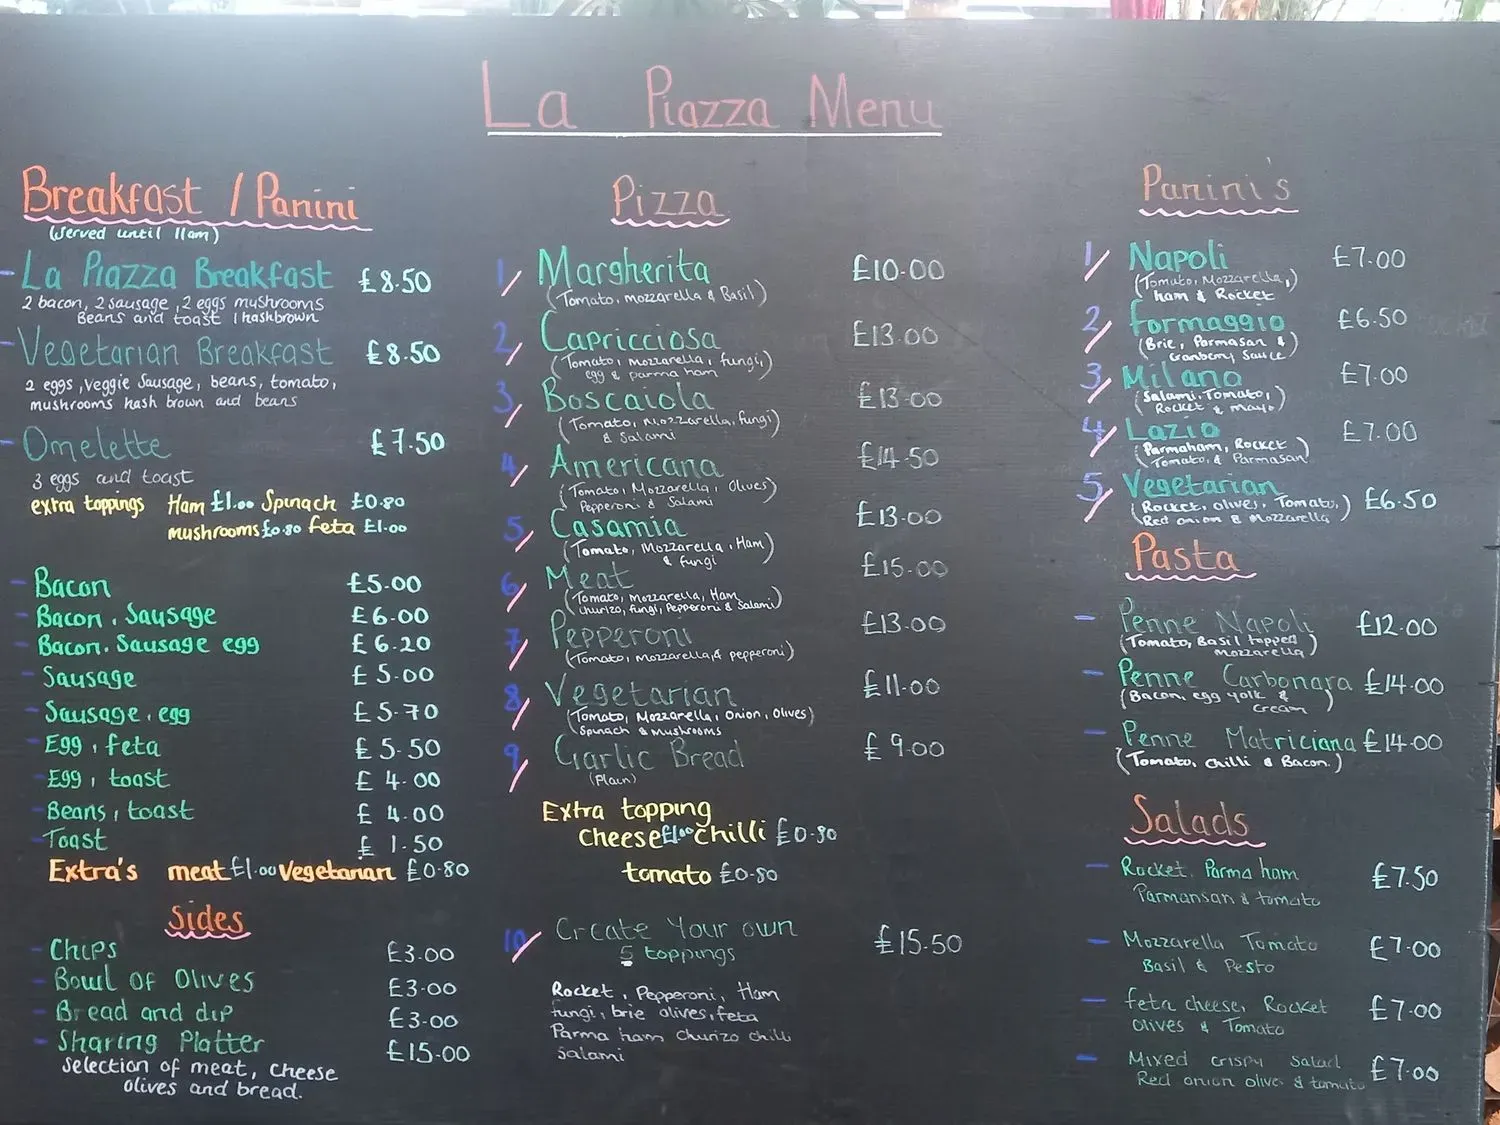 La Piazza Menu
Breakfast / Panini
(Served until 11am)
La Piazza Breakfast £8.50
2 bacon, 2 sausage, 2 eggs mushrooms
Beans and toast 1 hashbrown
Vegetarian Breakfast £8.50
2 eggs, veggie sausage, beans, tomato,
mushrooms hash brown and beans
Omelette £7.50
3 eggs and toast
extra toppings Ham £1.00 Spinach £0.80
mushrooms £0.80 feta £1.00
Bacon £5.00
Bacon, Sausage £6.00
Bacon, Sausage egg £6.20
Sausage £5.00
Sausage, egg £5.70
Egg, feta £5.50
Egg, toast £4.00
Beans, toast £4.00
Toast £1.50
Extra's meat £1.00 vegetarian £0.80
Sides
Chips £3.00
Bowl of Olives £3.00
Bread and dip £3.00
Sharing Platter £15.00
Selection of meat, cheese
olives and bread.
Pizza
1/ Margherita £10.00
(Tomato, mozzarella & Basil)
2/ Capricciosa £13.00
(Tomato, mozzarella, fungi,
egg & parma ham)
3/ Boscaiola £13.00
(Tomato, Mozzarella, fungi
& Salami)
4/ Americana £14.50
(Tomato, Mozzarella, Olives
Pepperoni & Salami)
5/ Casamia £13.00
(Tomato, Mozzarella, Ham
& fungi)
6/ Meat £15.00
(Tomato, mozzarella, Ham
Churizo, fungi, Pepperoni & Salami)
7/ Pepperoni £13.00
(Tomato, mozzarella, & pepperoni)
8/ Vegetarian £11.00
(Tomato, Mozzarella, Onion, Olives
Spinach & Mushrooms
9/ Garlic Bread £9.00
(Plain)
Extra topping
Cheese £1.00 Chilli £0.80
tomato £0.80
10/ Create Your own £15.50
5 toppings
Rocket, Pepperoni, Ham
fungi, brie olives, feta
Parma ham Churizo chilli
Salami
Panini's
1/ Napoli £7.00
(Tomato, Mozzarella,
ham & Rocket)
2/ Formaggio £6.50
(Brie, Parmasan &
Cranberry Sauce)
3/ Milano £7.00
(Salami, Tomato,
Rocket & mayo)
4/ Lazio £7.00
(Parmaham, Rocket
Tomato, & Parmasan)
5/ Vegetarian £6.50
(Rocket, olives, Tomato,
Red onion & Mozzarella)
Pasta
Penne Napoli £12.00
(Tomato, Basil topped
mozzarella)
Penne Carbonara £14.00
(Bacon, egg yolk &
cream)
Penne Matriciana £14.00
(Tomato, chilli & Bacon.)
Salads
Rocket, Parma ham £7.50
Parmansan & tomato
Mozzarella Tomato £7.00
Basil & Pesto
feta cheese, Rocket £7.00
olives & Tomato
Mixed crispy salad £7.00
Red onion olives & tomato